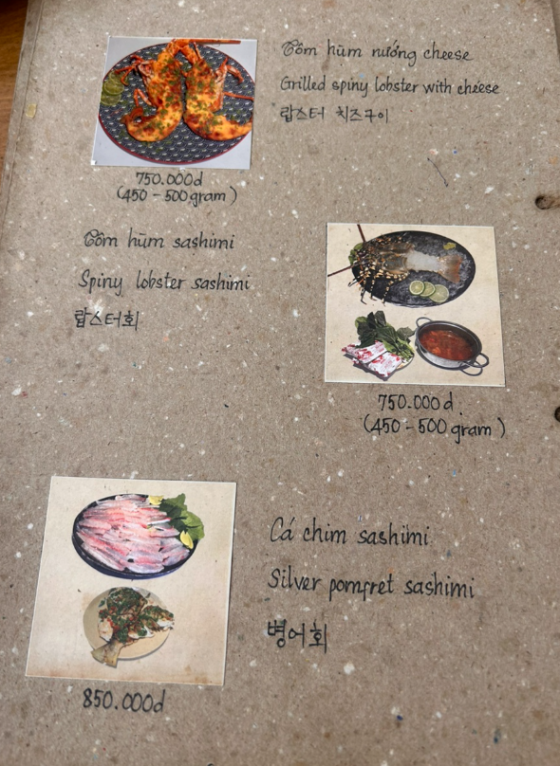 Tôm hùm nướng cheese
Grilled spiny lobster with cheese
랍스터 치즈구이
750.000đ
(450 - 500 gram)
Tôm hùm sashimi
Spiny lobster sashimi
랍스터회
750.000đ
(450 - 500 gram)
Cá chim sashimi
Silver pompret sashimi
병어회
850.000đ